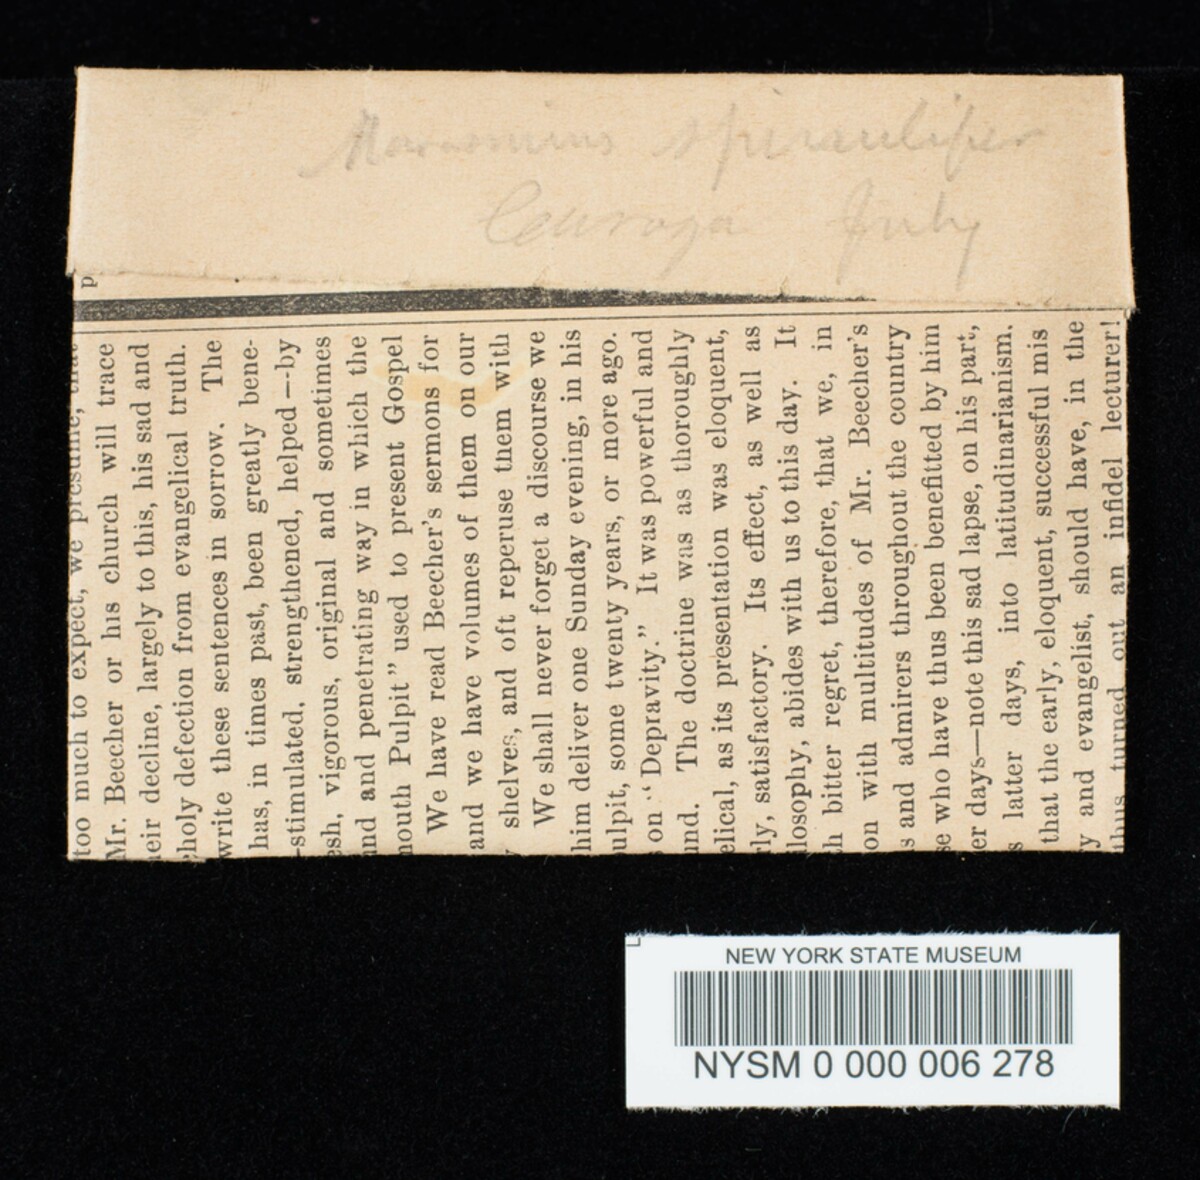 Marasmius spiraulifer
Conroga July
p
too much to expect, we presume, that
Mr. Beecher or his church will trace
eir decline, largely to this, his sad and
holy defection from evangelical truth.
write these sentences in sorrow. The
has, in times past, been greatly bene-
-stimulated, strengthened, helped—by
esh, vigorous, original and sometimes
nd and penetrating way in which the
nouth Pulpit" used to present Gospel
We have read Beecher's sermons for
and we have volumes of them on our
shelves, and oft reperuse them with
We shall never forget a discourse we
him deliver one Sunday evening, in his
ulpit, some twenty years, or more ago.
s on "Depravity." It was powerful and
und. The doctrine was as thoroughly
elical, as its presentation was eloquent,
rly, satisfactory. Its effect, as well as
losophy, abides with us to this day. It
h bitter regret, therefore, that we, in
on with multitudes of Mr. Beecher's
s and admirers throughout the country
se who have thus been benefitted by him
er days—note this sad lapse, on his part,
s latter days, into latitudinarianism.
that the early, eloquent, successful mis
y and evangelist, should have, in the
thus turned out an infidel lecturer!
NEW YORK STATE MUSEUM
NYSM 0 000 006 278